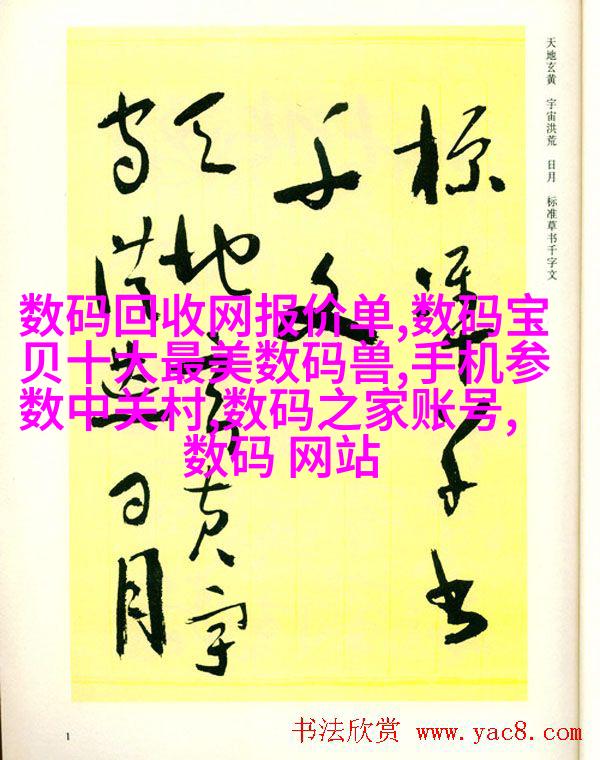 天地玄黄 宇宙洪荒 日月 标准草书千字文
标准草书
千文
天地玄黄宇
宙洪荒日月
数码回收网报价单,数码宝
贝十大最美数码兽,手机参
数中关村,数码之家账号,
数码 网站
1
书法欣赏 www.yac8.com